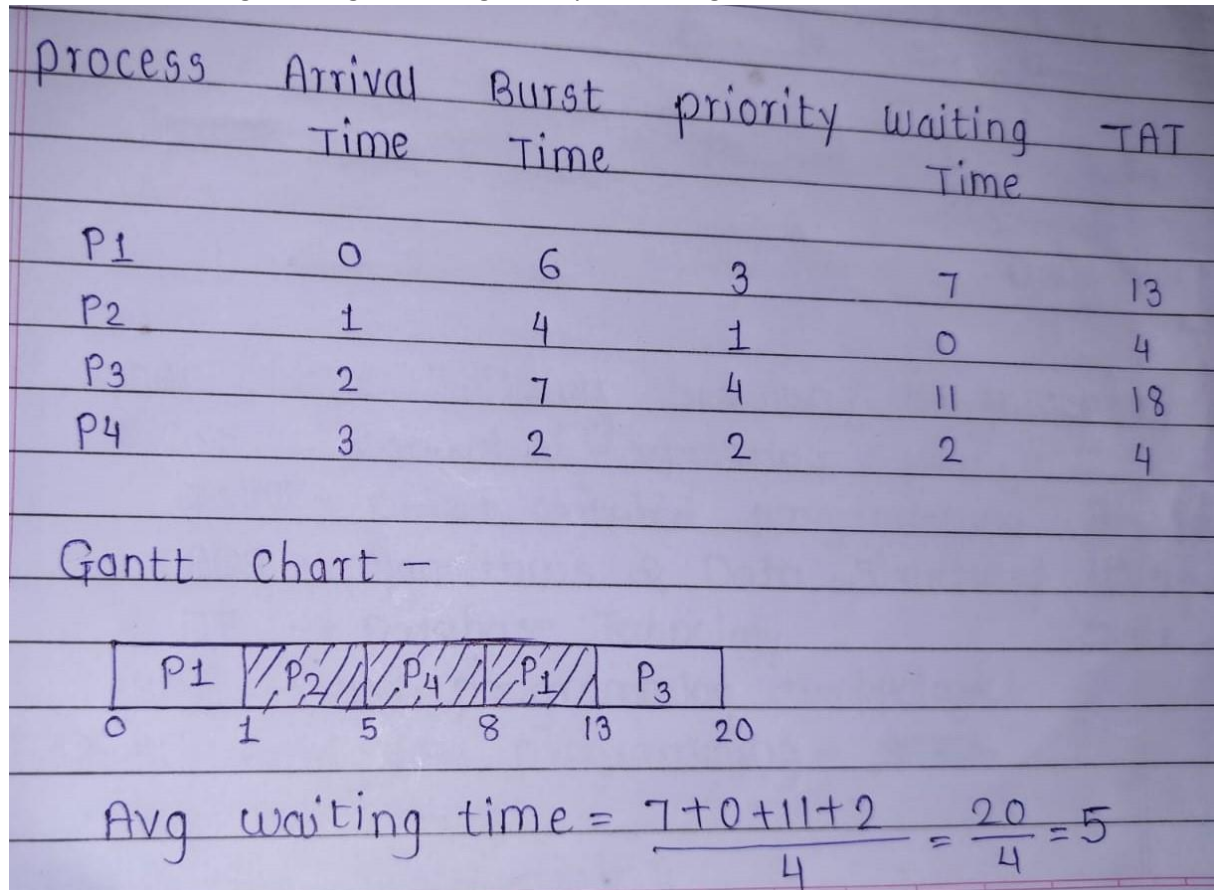 process Arrival Burst priority waiting TAT
Time Time Time
P1 0 6 3 7 13
P2 1 4 1 0 4
P3 2 7 4 11 18
P4 3 2 2 2 4
Gantt chart -
P1 P2 P4 P1 P3
0 1 5 8 13 20
Avg waiting time = 7+0+11+2 / 4 = 20 / 4 = 5